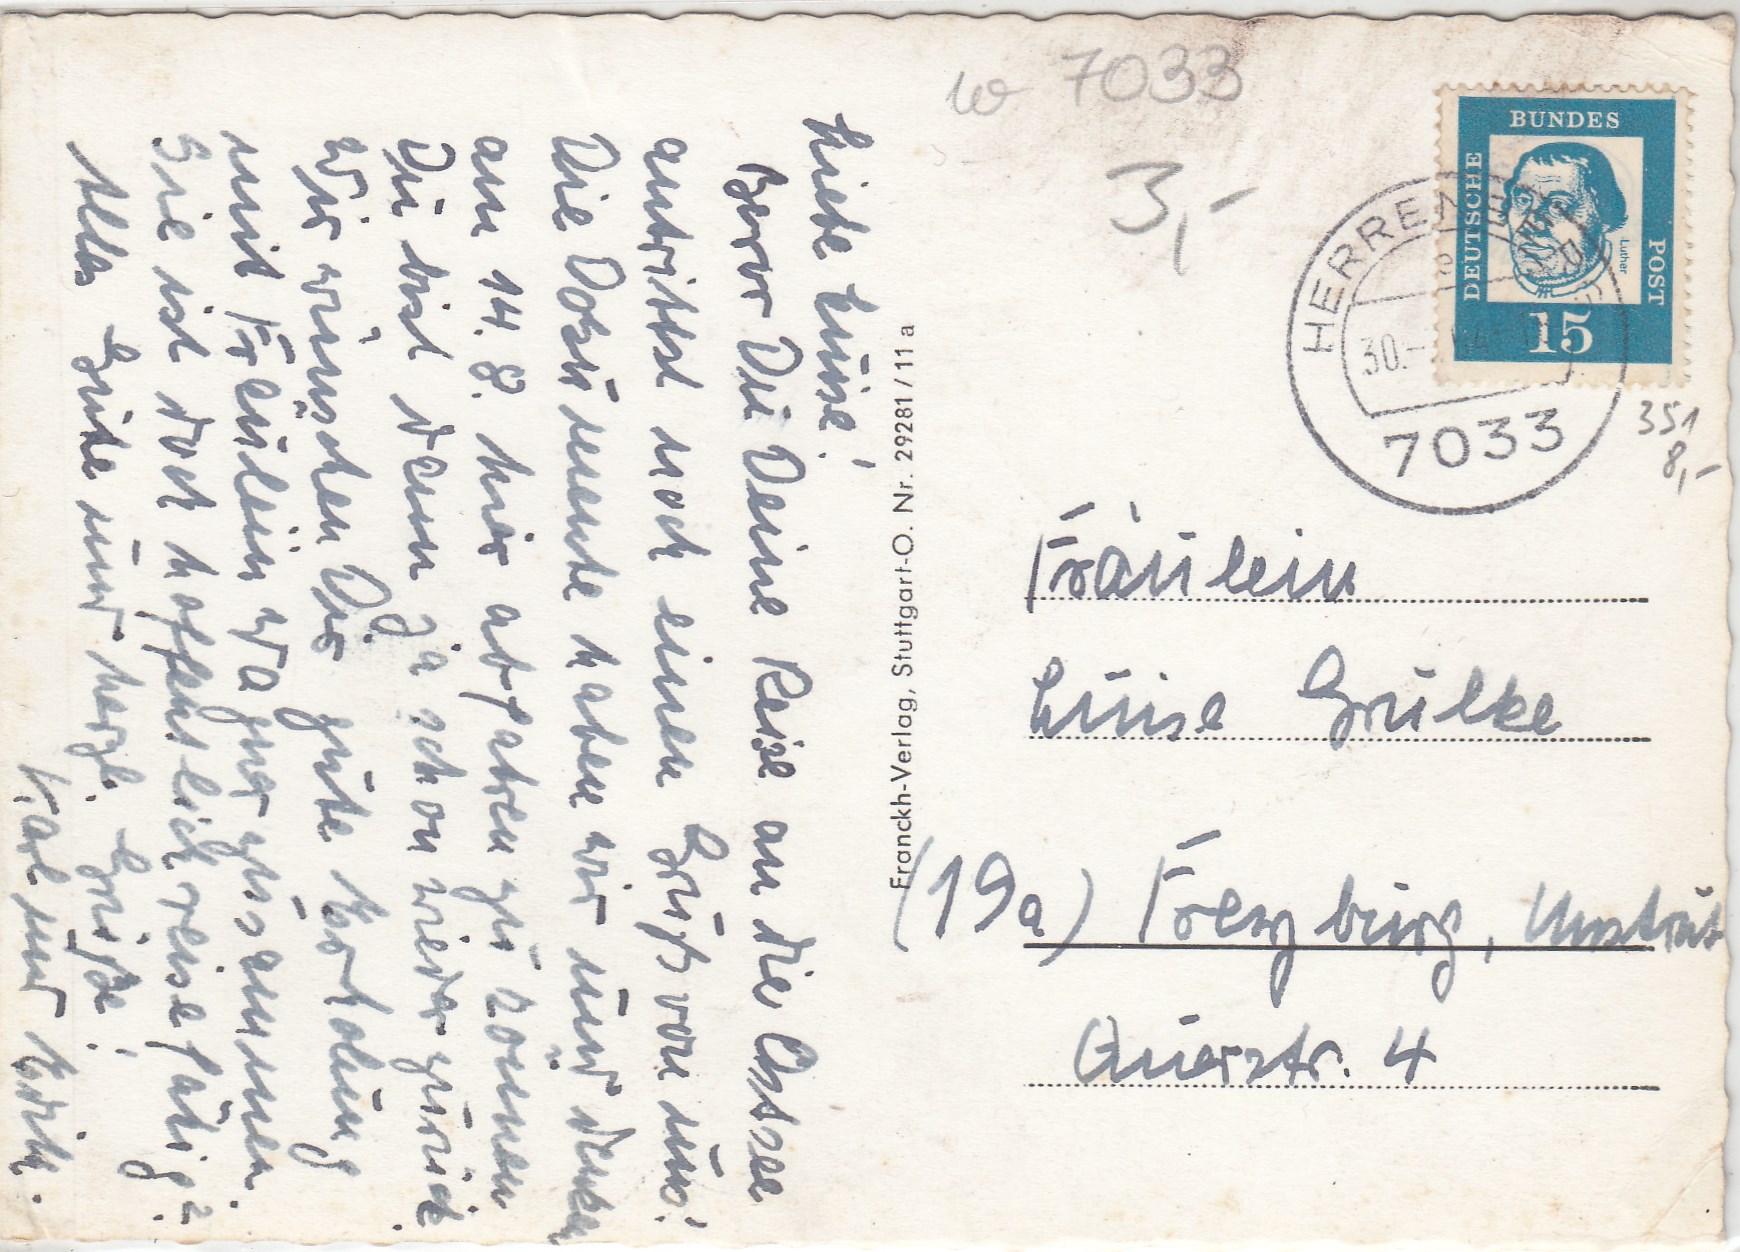 Liebe Luise!
Bevor Du Deine Reise an die Ostsee
antrittst noch einen Gruß von uns!
Die Dokumente haben wir und denken
am 14. 8. hier abfahren zu können
Du bist dann ja schon wieder zurück.
Wir wünschen Dir gute Erholung
mit Fräulein Wagner zusammen.
Sie ist doch hoffentlich reisefähig?
Alles Gute und herzl. Grüße!
Karl und
Franckh-Verlag, Stuttgart-O. Nr. 29281/11a
7033
3,-
BUNDES
DEUTSCHE
POST
Luther
15
HERRENBERG
30.-
7033
351
8,-
Fräulein
Luise Grülke
(19a) Freyburg, Unstrut
Querstr. 4